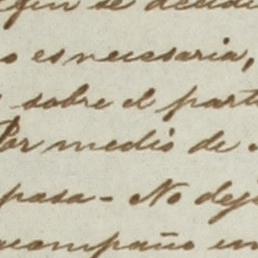 fin se decidi
o es necesaria,
sobre el part
Por medio de
pasa - No dej
acompaño en